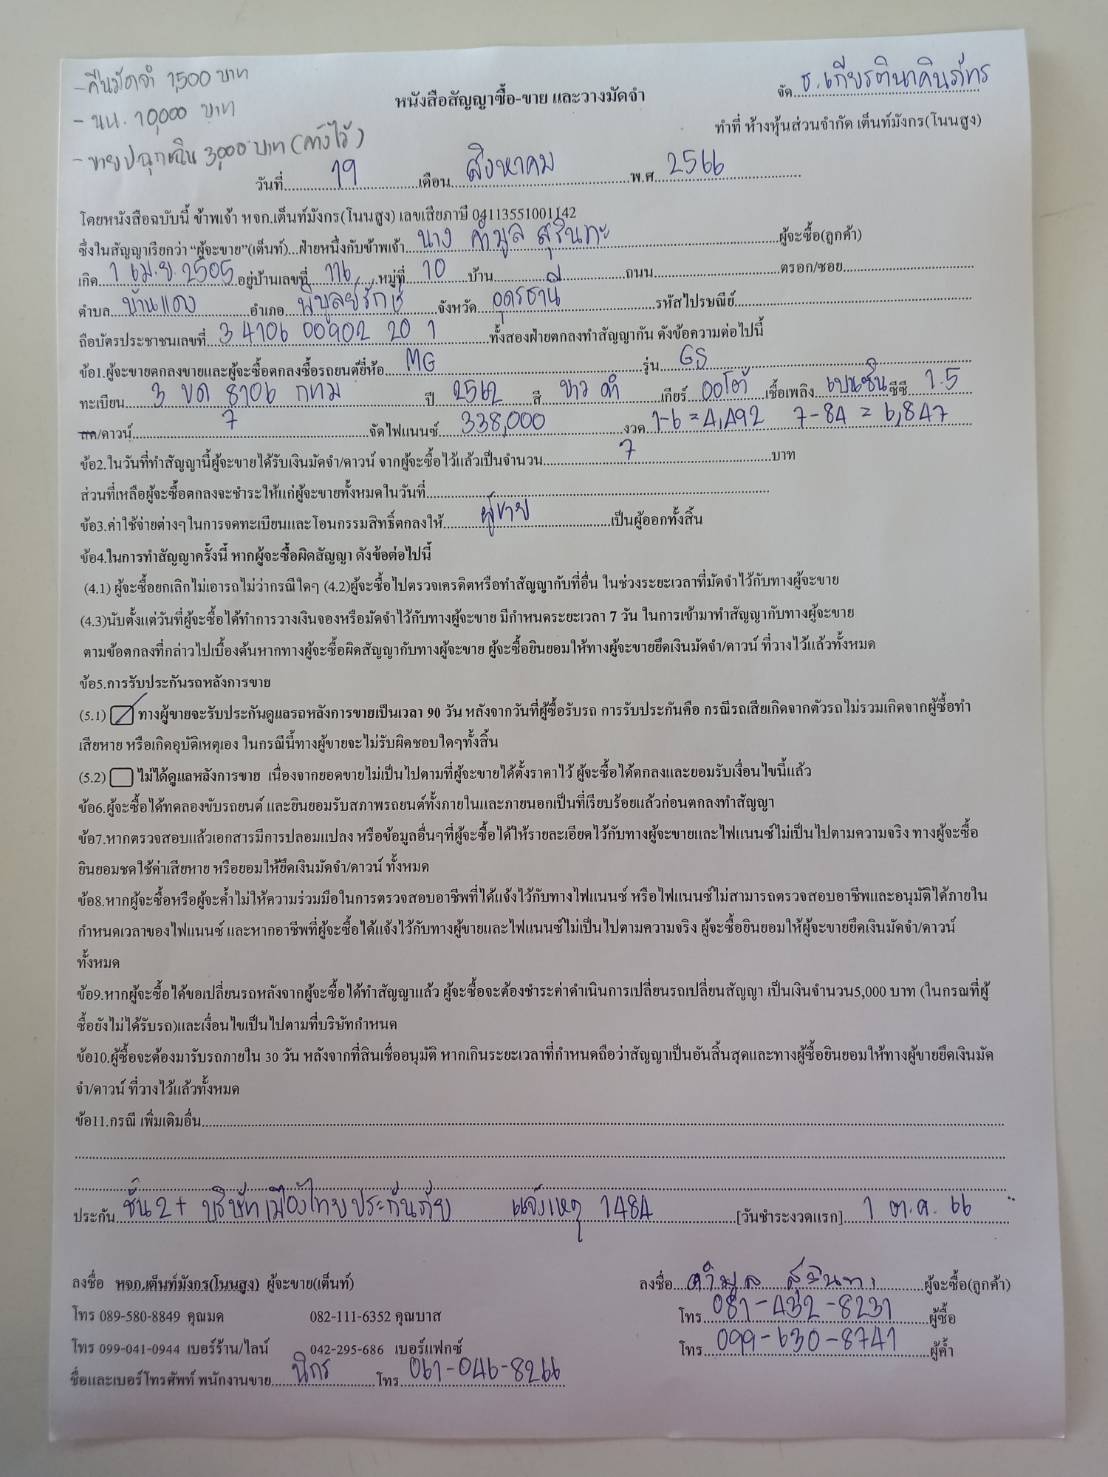 -คืนมัดจำ 1,500 บาท
- นน. 10,000 บาท
- ขายปลุกเฉิน 3,000 บาท (ค้างไว้)
จัด ธ.เกียรตินาคินภัทร
หนังสือสัญญาซื้อ-ขาย และวางมัดจำ
ทำที่ ห้างหุ้นส่วนจำกัด เต็นท์มังกร(โนนสูง)
วันที่ 19 เดือน สิงหาคม พ.ศ. 2566
โดยหนังสือฉบับนี้ ข้าพเจ้า หจก.เต็นท์มังกร(โนนสูง) เลขเสียภาษี 04113551001142
ซึ่งในสัญญาเรียกว่า “ผู้จะขาย”(เต็นท์)...ฝ่ายหนึ่งกับข้าพเจ้า นาง คำมูล สุรินทะ ผู้จะซื้อ(ลูกค้า)
เกิด 1 เม.ย. 2505 อยู่บ้านเลขที่ 116 หมู่ที่ 10 บ้าน ถนน ตรอก/ซอย
ตำบล บ้านแดง อำเภอ พิบูลย์รักษ์ จังหวัด อุดรธานี รหัสไปรษณีย์
ถือบัตรประชาชนเลขที่ 3 4106 00902 20 1 ทั้งสองฝ่ายตกลงทำสัญญากัน ดังข้อความต่อไปนี้
ข้อ1.ผู้จะขายตกลงขายและผู้จะซื้อตกลงซื้อรถยนต์ยี่ห้อ MG รุ่น GS
ทะเบียน 3 ขด 8106 กทม ปี 2562 สี ขาว ดำ เกียร์ ออโต้ เชื้อเพลิง เบนซิน ซีซี 1.5
สด/ดาวน์ 7 จัดไฟแนนซ์ 338,000 งวด 1-6 = 4,492 7-84 = 6,847
ข้อ2.ในวันที่ทำสัญญานี้ผู้จะขายได้รับเงินมัดจำ/ดาวน์ จากผู้จะซื้อไว้แล้วเป็นจำนวน 7 บาท
ส่วนที่เหลือผู้จะซื้อตกลงจะชำระให้แก่ผู้จะขายทั้งหมดในวันที่
ข้อ3.ค่าใช้จ่ายต่างๆในการจดทะเบียนและโอนกรรมสิทธิ์ตกลงให้ ผู้ขาย เป็นผู้ออกทั้งสิ้น
ข้อ4.ในการทำสัญญาครั้งนี้ หากผู้จะซื้อผิดสัญญา ดังข้อต่อไปนี้
(4.1) ผู้จะซื้อยกเลิกไม่เอารถไม่ว่ากรณีใดๆ (4.2)ผู้จะซื้อไปตรวจเครดิตหรือทำสัญญากับที่อื่น ในช่วงระยะเวลาที่มัดจำไว้กับทางผู้จะขาย
(4.3)นับตั้งแต่วันที่ผู้จะซื้อได้ทำการวางเงินจองหรือมัดจำไว้กับทางผู้จะขาย มีกำหนดระยะเวลา 7 วัน ในการเข้ามาทำสัญญากับทางผู้จะขาย
ตามข้อตกลงที่กล่าวไปเบื้องต้นหากทางผู้จะซื้อผิดสัญญากับทางผู้จะขาย ผู้จะซื้อยินยอมให้ทางผู้จะขายยึดเงินมัดจำ/ดาวน์ ที่วางไว้แล้วทั้งหมด
ข้อ5.การรับประกันรถหลังการขาย
(5.1) ทางผู้ขายจะรับประกันดูแลรถหลังการขายเป็นเวลา 90 วัน หลังจากวันที่ผู้ซื้อรับรถ การรับประกันคือ กรณีรถเสียเกิดจากตัวรถ ไม่รวมเกิดจากผู้ซื้อทำ
เสียหาย หรือเกิดอุบัติเหตุเอง ในกรณีนี้ทางผู้ขายจะไม่รับผิดชอบใดๆทั้งสิ้น
(5.2) ไม่ได้ดูแลหลังการขาย เนื่องจากยอดขายไม่เป็นไปตามที่ผู้จะขายได้ตั้งราคาไว้ ผู้จะซื้อได้ตกลงและยอมรับเงื่อนไขนี้แล้ว
ข้อ6.ผู้จะซื้อได้ทดลองขับรถยนต์ และยินยอมรับสภาพรถยนต์ทั้งภายในและภายนอกเป็นที่เรียบร้อยแล้วก่อนตกลงทำสัญญา
ข้อ7.หากตรวจสอบแล้วเอกสารมีการปลอมแปลง หรือข้อมูลอื่นๆที่ผู้จะซื้อได้ให้รายละเอียดไว้กับทางผู้จะขายและไฟแนนซ์ไม่เป็นไปตามความจริง ทางผู้จะซื้อ
ยินยอมชดใช้ค่าเสียหาย หรือยอมให้ยึดเงินมัดจำ/ดาวน์ ทั้งหมด
ข้อ8.หากผู้จะซื้อหรือผู้จะค้ำไม่ให้ความร่วมมือในการตรวจสอบอาชีพที่ได้แจ้งไว้กับทางไฟแนนซ์ หรือไฟแนนซ์ไม่สามารถตรวจสอบอาชีพและอนุมัติได้ภายใน
กำหนดเวลาของไฟแนนซ์ และหากอาชีพที่ผู้จะซื้อได้แจ้งไว้กับทางผู้ขายและไฟแนนซ์ไม่เป็นไปตามความจริง ผู้จะซื้อยินยอมให้ผู้จะขายยึดเงินมัดจำ/ดาวน์
ทั้งหมด
ข้อ9.หากผู้จะซื้อได้ขอเปลี่ยนรถหลังจากผู้จะซื้อได้ทำสัญญาแล้ว ผู้จะซื้อจะต้องชำระค่าดำเนินการเปลี่ยนรถเปลี่ยนสัญญา เป็นเงินจำนวน5,000 บาท (ในกรณที่ผู้
ซื้อยังไม่ได้รับรถ)และเงื่อนไขเป็นไปตามที่บริษัทกำหนด
ข้อ10.ผู้ซื้อจะต้องมารับรถภายใน 30 วัน หลังจากที่สินเชื่ออนุมัติ หากเกินระยะเวลาที่กำหนดถือว่าสัญญาเป็นอันสิ้นสุดและทางผู้ซื้อยินยอมให้ทางผู้ขายยึดเงินมัด
จำ/ดาวน์ ที่วางไว้แล้วทั้งหมด
ข้อ11.กรณี เพิ่มเติมอื่น
ประกัน ชั้น 2+ บริษัท เมืองไทยประกันภัย แจ้งเหตุ 1484 [วันชำระงวดแรก] 1 ต.ค. 66
ลงชื่อ หจก.เต็นท์มังกร(โนนสูง) ผู้จะขาย(เต็นท์) ลงชื่อ คำมูล สุรินทะ ผู้จะซื้อ(ลูกค้า)
โทร 089-580-8849 คุณมด 082-111-6352 คุณบาส โทร 081-432-8231 ผู้ซื้อ
โทร 099-041-0944 เบอร์ร้าน/ไลน์ 042-295-686 เบอร์แฟกซ์ โทร 099-630-8741 ผู้ค้ำ
ชื่อและเบอร์โทรศัพท์ พนักงานขาย นิกร โทร 061-046-8266